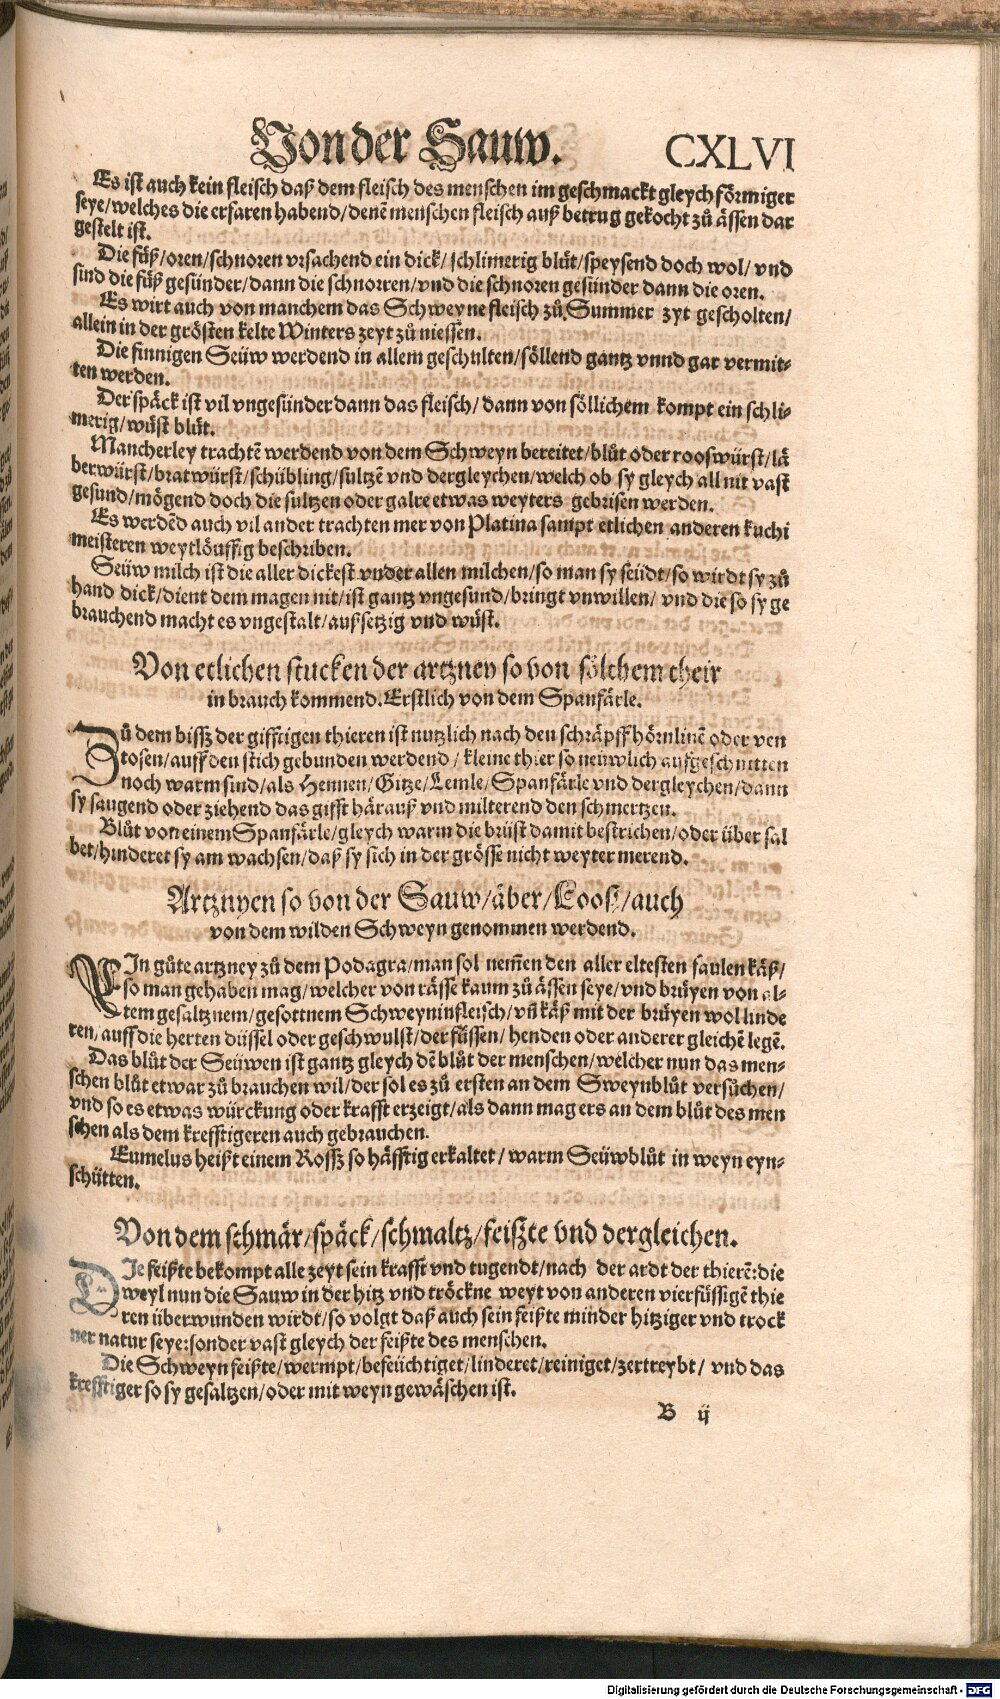 Von der Sauw. CXLVI
Es ist auch kein fleisch daß dem fleisch des menschen im geschmackt gleych förmiger
seye/welches die erfaren habend/denē menschen fleisch auß betrug gekocht zů ässen dar
gestelt ist.
Die füß/oren/schnoren vrsachend ein dick/schlimerig blůt/speysend doch wol/vnd
sind die füß gesünder/dann die schnorren/vnd die schnoren gesünder dann die oren.
Es wirt auch von manchem das Schweyne fleisch zů Summer zyt gescholten/
allein in der grösten kelte Winters zeyt zů niessen.
Die finnigen Seüw werdend in allem geschulten/söllend gantz vnnd gar vermit-
ten werden.
Der späck ist vil vngesünder dann das fleisch/dann von söllichem kompt ein schli-
merig/wüst blůt.
Mancherley trachtē werdend von dem Schweyn bereitet/blůt oder rooswürst/lä
berwürst/bratwürst/schübling/sultzē vnd dergleychen/welch ob sy gleych all nit vast
gesund/mögend doch die sultzen oder galre etwas weyters gebrisen werden.
Es werdēd auch vil ander trachten mer von Platina sampt etlichen anderen kuchi
meisteren weytlöuffig beschriben.
Seüw milch ist die aller dickest vnder allen milchen/so man sy seüdt/so wirdt sy zů
hand dick/dient dem magen nit/ist gantz vngesund/bringt vnwillen/vnd die so sy ge
brauchend macht es vngestalt/außsetzig vnd wüst.
Von etlichen stucken der artzney so von sölchem their
in brauch kommend. Erstlich von dem Spanfärle.
Zů dem bissz der gifftigen thieren ist nutzlich nach den schräpff hörnlinē oder ven
tosen/auff den stich gebunden werdend/kleine thier so neüwlich aufgeschnitten
noch warm sind/als Hennen/Gitze/Lemle/Spanfärle vnd dergleychen/dann
sy saugend oder ziehend das gifft härauß vnd milterend den schmertzen.
Blůt von einem Spanfärle/gleych warm die brüst damit bestrichen/oder über sal
bet/hinderet sy am wachsen/daß sy sich in der grösse nicht weyter merend.
Artznyen so von der Sauw/äber/Loos/auch
von dem wilden Schweyn genommen werdend.
EIn gůte artzney zů dem Podagra/man sol nemēn den aller eltesten faulen käß/
so man gehaben mag/welcher von rässe kaum zů ässen seye/vnd brüyen von al-
tem gesaltznem/gesottnem Schweyninfleisch/vñ käß mit der brüyen wol linde
ren/auff die herten düssel oder geschwulst/der füssen/henden oder anderer gleichē legē.
Das blůt der Seüwen ist gantz gleych dē blůt der menschen/welcher nun das men-
schen blůt etwar zů brauchen wil/der sol es zů ersten an dem Sweynblůt versůchen/
vnd so es etwas würckung oder krafft erzeigt/als dann mag ers an dem blůt des men
schen als dem krefftigeren auch gebrauchen.
Eumelus heißt einem Rossz so häfftig erkaltet/warm Seüwblůt in weyn eyn-
schütten.
Von dem schmär/späck/schmaltz/feißte vnd dergleichen.
DIe feißte bekompt alle zeyt sein krafft vnd tugendt/nach der ardt der thierē: die
weyl nun die Sauw in der hitz vnd tröckne weyt von anderen vierfüssigē thie
ren überwunden wirdt/so volgt daß auch sein feißte minder hitziger vnd trock
ner natur seye: sonder vast gleych der feißte des menschen.
Die Schweyn feißte/wermpt/befeüchtiget/linderet/reiniget/zertreybt/vnd das
krefftiger so sy gesaltzen/oder mit weyn gewäschen ist.
B ij
Digitalisierung gefördert durch die Deutsche Forschungsgemeinschaft - DFG